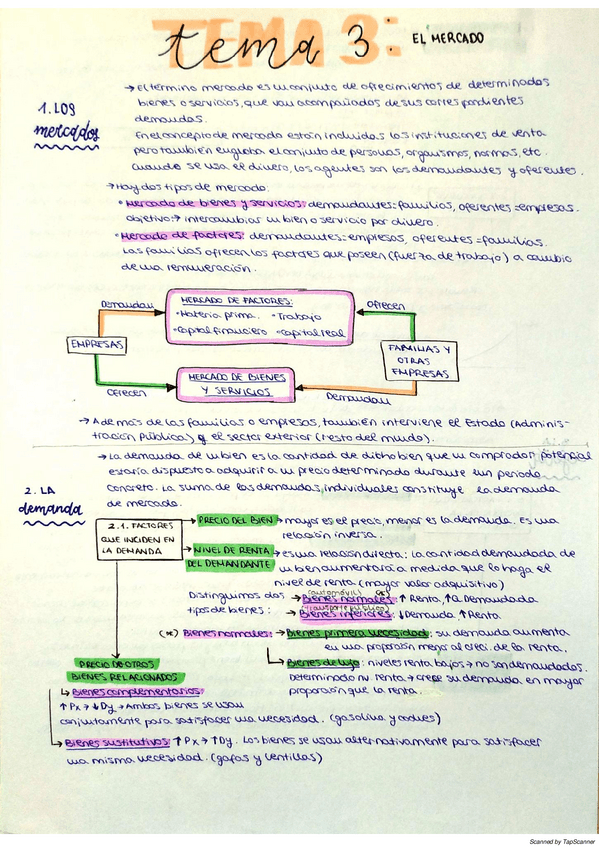 TEMA 3:
tema 3: EL MERCADO
1. LOS
mercados
→ El término mercado es un conjunto de ofrecimientos de determinados
bienes o servicios, que van acompañados de sus correspondientes
demandas.
En el concepto de mercado están incluidas las instituciones de venta
pero también engloba el conjunto de personas, organismos, normas, etc.
Cuando se usa el dinero, los agentes son los demandantes y oferentes.
→ Hay dos tipos de mercado:
• Mercado de bienes y servicios: demandantes = familias, oferentes = empresas.
objetivo: → intercambiar un bien o servicio por dinero.
• Mercado de factores: demandantes = empresas, oferentes = familias.
Las familias ofrecen los factores que poseen (fuerza de trabajo) a cambio
de una remuneración.
Demandan
MERCADO DE FACTORES:
• Materia prima. • Trabajo
• Capital financiero • Capital real
Ofrecen
EMPRESAS
FAMILIAS Y
OTRAS
EMPRESAS
Ofrecen
MERCADO DE BIENES
Y SERVICIOS
Demandan
→ Además de las familias o empresas, también interviene el Estado (Adminis-
tración Pública) y el sector exterior (resto del mundo).
2. LA
demanda
→ La demanda de un bien es la cantidad de dicho bien que un comprador potencial
estaría dispuesto a adquirir a un precio determinado durante un periodo
concreto. La suma de las demandas individuales constituye la demanda
de mercado.
2.1. FACTORES
QUE INCIDEN EN
LA DEMANDA
PRECIO DEL BIEN → mayor es el precio, menor es la demanda. Es una
relación inversa.
NIVEL DE RENTA
DEL DEMANDANTE
→ es una relación directa: la cantidad demandada de
un bien aumentará a medida que lo haga el
nivel de renta (mayor valor adquisitivo)
Distinguimos dos
tipos de bienes:
(automóvil) (*)
→ Bienes normales: ↑ Renta, ↑Q. Demandada
(transporte público)
→ Bienes inferiores: ↓Demanda, ↑Renta.
(*) Bienes normales: → Bienes primera necesidad: su demanda aumenta
en una proporción menor al creci. de la renta.
→ Bienes de lujo: niveles renta bajos → no son demandados.
Determinado niv. renta → crece su demanda en mayor
proporción que la renta.
PRECIO DE OTROS
BIENES RELACIONADOS
→ Bienes complementarios:
↑ Px → ↓ Dy → Ambos bienes se usan
conjuntamente para satisfacer una necesidad. (gasolina y coches)
→ Bienes sustitutivos: ↑ Px → ↑ Dy. Los bienes se usan alternativamente para satisfacer
una misma necesidad. (gafas y lentillas)
Scanned by TapScanner